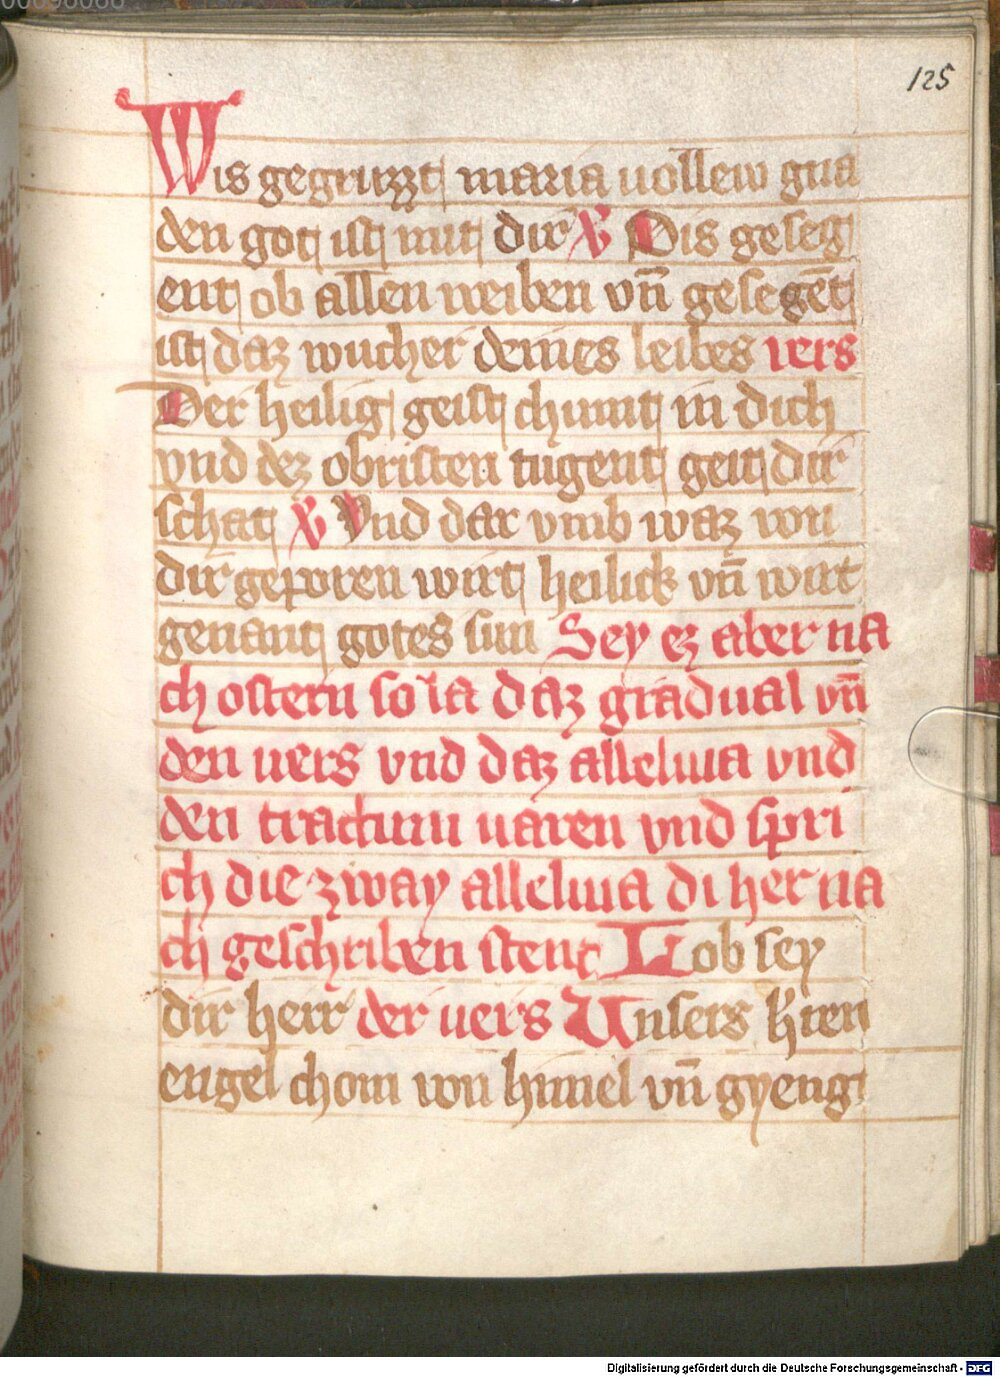 125
Wis gegruzzt maria uollew gna
den got ist mit dir ℣ Dis geseig
ent ob allen weiben vn̄ gesegēt
ist daz wucher deines leibes vers
Der heilig geist chumt in dich
vnd dez obristen tugent geit dir
schat ℣ Vnd dar vmb waz von
dir geporen wirt heilick vn̄ wirt
genant gotes sun Sey ez aber na
ch ostern so la daz gradual vn̄
den uers vnd daz alleluia vnd
den tractum uaren vnd spri
ch die zway alleluia di her na
ch geschriben stent Lob sey
dir herr der uers Unsers h̄ren
engel chom von himel vn̄ gyeng
Digitalisierung gefördert durch die Deutsche Forschungsgemeinschaft - DFG